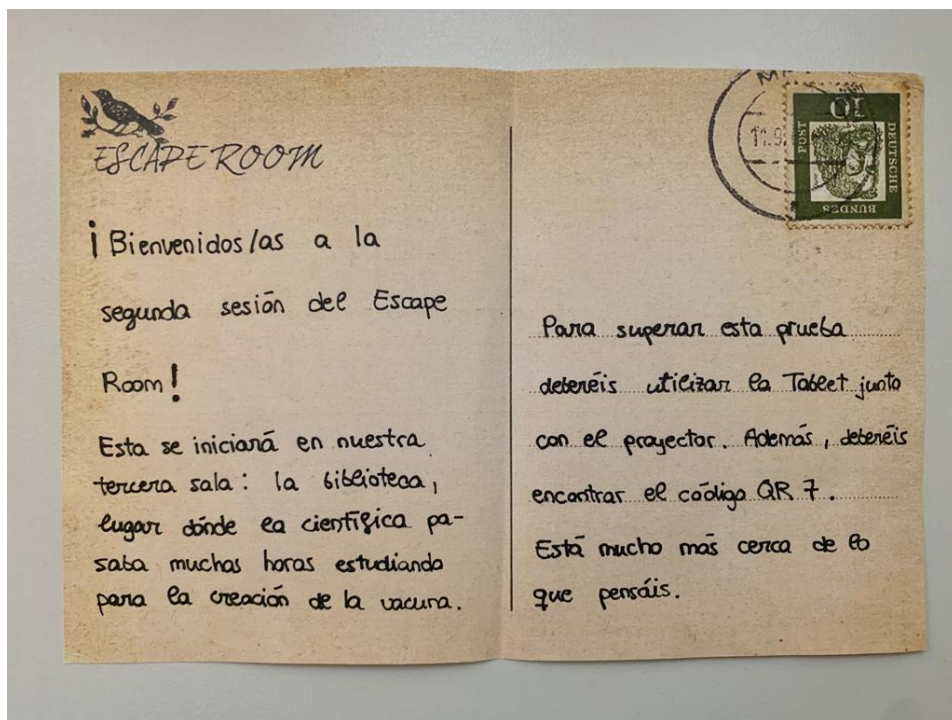 ESCAPE ROOM
¡Bienvenidos/as a la
segunda sesión del Escape
Room!
Esta se iniciará en nuestra
tercera sala: la biblioteca,
lugar dónde la científica pa-
saba muchas horas estudiando
para la creación de la vacuna.
11.9.
10
POST
DEUTSCHE
BUNDES
Para superar esta prueba
deberéis utilizar la Tablet junto
con el proyector. Además, deberéis
encontrar el código QR 7.
Está mucho más cerca de lo
que pensáis.